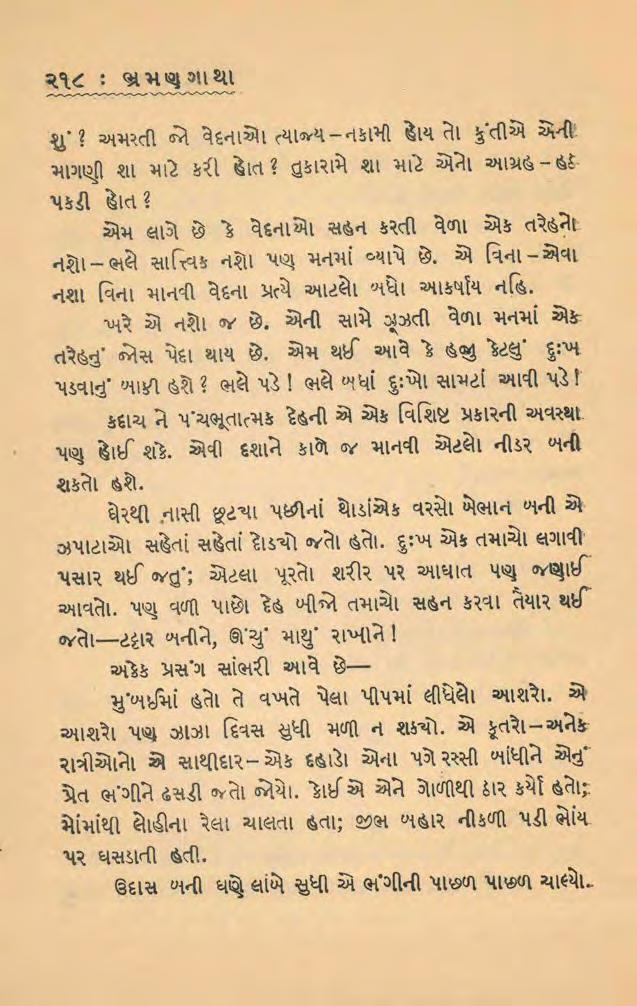 ૨૧૮ : ભ્રમણગાથા
શું ? અમરતી જો વેદનાઓ ત્યાજ્ય – નકામી હોય તો કુંતીએ એની
માગણી શા માટે કરી હોત ? તુકારામે શા માટે એનો આગ્રહ – હઠ
પકડી હોત ?
એમ લાગે છે કે વેદનાઓ સહન કરતી વેળા એક તરેહનો
નશો – ભલે સાત્ત્વિક નશો પણ મનમાં વ્યાપે છે. એ વિના – એવા
નશા વિના માનવી વેદના પ્રત્યે આટલો બધો આકર્ષાય નહિ.
ખરે એ નશો જ છે. એની સામે ઝૂઝતી વેળા મનમાં એક
તરેહનું જોસ પેદા થાય છે. એમ થઈ આવે કે હજુ કેટલું દુઃખ
પડવાનું બાકી હશે ? ભલે પડે ! ભલે બધાં દુઃખો સામટાં આવી પડે !
કદાચ ને પંચભૂતાત્મક દેહની એ એક વિશિષ્ટ પ્રકારની અવસ્થા
પણ હોઈ શકે. એવી દશાને કાળે જ માનવી એટલો નીડર બની
શકતો હશે.
ઘેરથી નાસી છૂટ્યા પછીનાં થોડાંએક વરસો બેભાન બની એ
ઝપાટાઓ સહેતાં સહેતાં દોડ્યો જતો હતો. દુઃખ એક તમાચો લગાવી
પસાર થઈ જતું; એટલા પૂરતો શરીર પર આઘાત પણ જણાઈ
આવતો. પણ વળી પાછો દેહ બીજો તમાચો સહન કરવા તૈયાર થઈ
જતો—ટટ્ટાર બનીને, ઊંચું માથું રાખીને !
અકેક પ્રસંગ સાંભરી આવે છે—
મુંબઈમાં હતો તે વખતે પેલા પીપમાં લીધેલો આશરો. એ
આશરો પણ ઝાઝા દિવસ સુધી મળી ન શક્યો. એ કૂતરો – અનેક
રાત્રીઓનો એ સાથીદાર – એક દહાડો એના પગે રસ્સી બાંધીને એનું
પ્રેત ભંગીને ઢસડી જતો જોયો. કોઈ એ એને ગોળીથી ઠાર કર્યો હતો;
મોંમાંથી લોહીના રેલા ચાલતા હતા; જીભ બહાર નીકળી પડી ભોંય
પર ઘસડાતી હતી.
ઉદાસ બની ઘણે લાંબે સુધી એ ભંગીની પાછળ પાછળ ચાલ્યો.